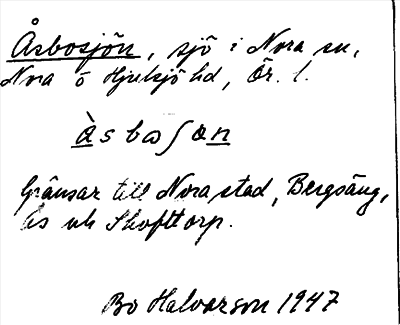 Åsbosjön, sjö i Nora sn,
Nora o Hjulsjö hd, Ör. l.
àsboʃөn
Gränsar till Nora stad, Bergsäng,
Ås och Skofttorp.
Bo Halvarson 1947